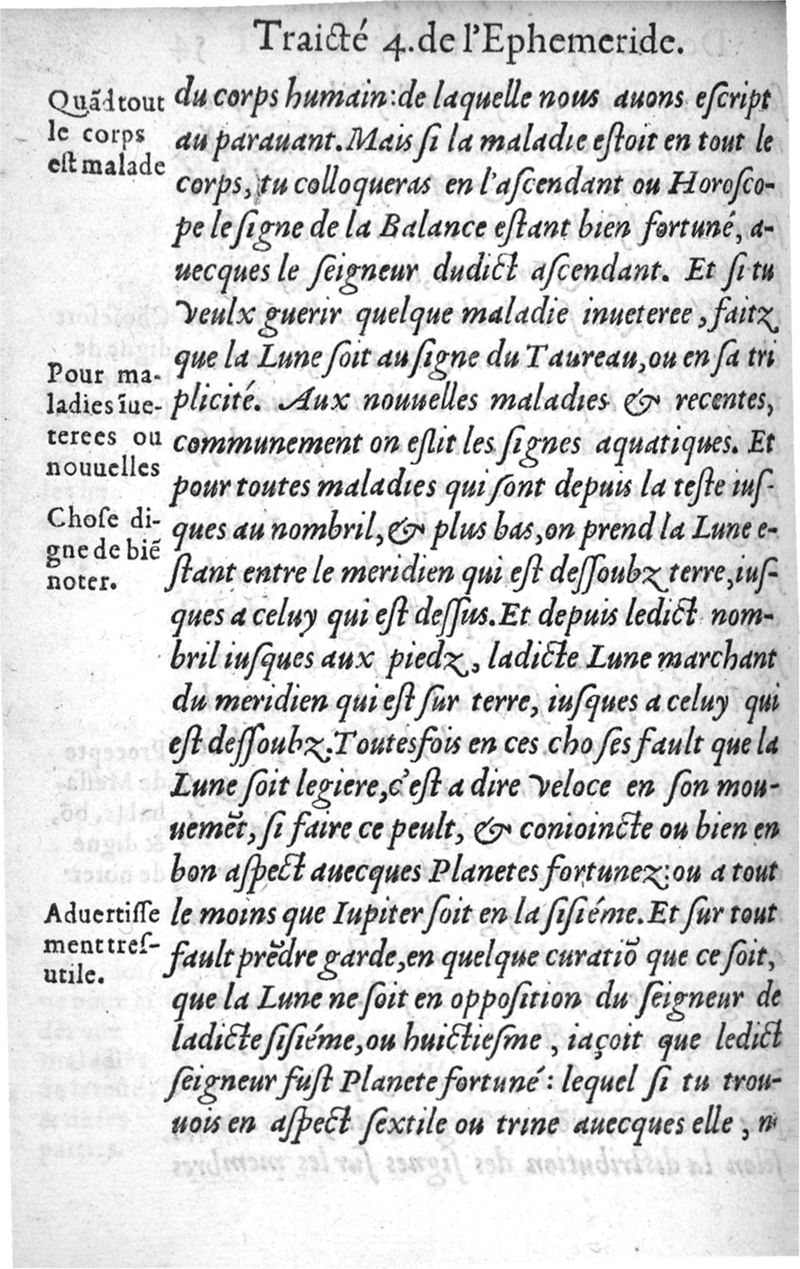 Traicté 4. de l'Ephemeride.
Quãd tout
le corps
est malade
du corps humain: de laquelle nous auons eſcript
au parauant. Mais ſi la maladie eſtoit en tout le
corps, tu colloqueras en l'aſcendant ou Horoſco-
pe le ſigne de la Balance eſtant bien fortuné, a-
uecques le ſeigneur dudict aſcendant. Et ſi tu
veulx guerir quelque maladie inueteree, faitz
que la Lune ſoit au ſigne du Taureau, ou en ſa tri
Pour ma-
ladies īue-
terees ou
nouuelles
plicité. Aux nouuelles maladies & recentes,
communement on eſlit les ſignes aquatiques. Et
pour toutes maladies qui ſont depuis la teſte iuſ-
Choſe di-
gne de biẽ
noter.
ques au nombril, & plus bas, on prend la Lune e-
ſtant entre le meridien qui eſt deſſoubz terre, iuſ-
ques a celuy qui eſt deſſus. Et depuis ledict nom-
bril iuſques aux piedz, ladicte Lune marchant
du meridien qui eſt ſur terre, iuſques a celuy qui
eſt deſſoubz. Toutesfois en ces choſes fault que la
Lune ſoit legiere, c'eſt a dire veloce en ſon mou-
uemẽt, ſi faire ce peult, & conioincte ou bien en
bon aſpect auecques Planetes fortunez: ou a tout
Aduertiſſe
ment treſ-
utile.
le moins que Iupiter ſoit en la ſiſiéme. Et ſur tout
fault prẽdre garde, en quelque curatiõ que ce ſoit,
que la Lune ne ſoit en oppoſition du ſeigneur de
ladicte ſiſiéme, ou huictieſme, iaçoit que ledict
ſeigneur fuſt Planete fortuné: lequel ſi tu trou-
uois en aſpect ſextile ou trine auecques elle,